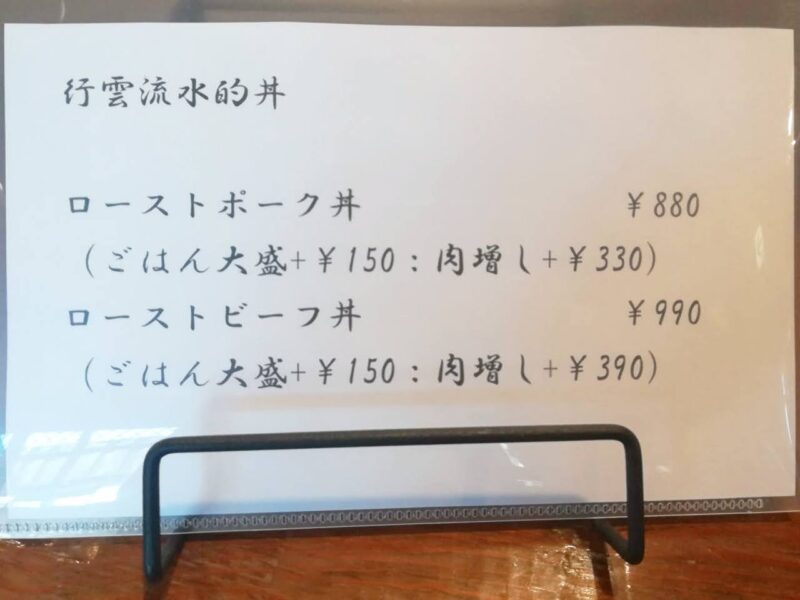 行雲流水的丼
ローストポーク丼 ¥880
（ごはん大盛+¥150：肉増し+¥330）
ローストビーフ丼 ¥990
（ごはん大盛+¥150：肉増し+¥390）